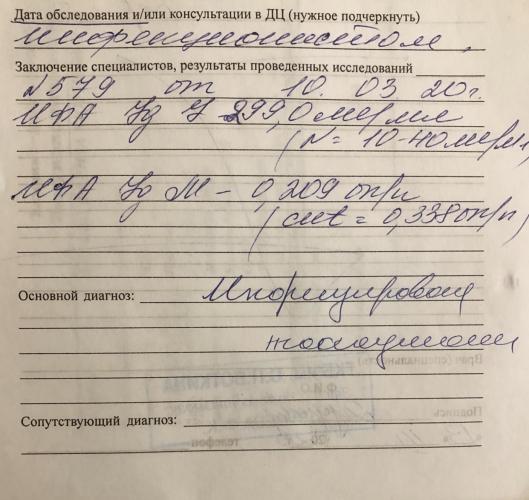 Дата обследования и/или консультации в ДЦ (нужное подчеркнуть)
инфекционистом,
Заключение специалистов, результаты проведенных исследований
№579 от 10. 03 20г.
ИФА Ig G 299,0 ме/мл
(N = 10-40 ме/мл
ИФА Ig M - 0,209 оп/п
(cut = 0,338 оп/п)
Основной диагноз: Инфицирован
токсоплазмоз
Сопутствующий диагноз:
Врач (специальность)
Ф.И.О
Подпись
телефон